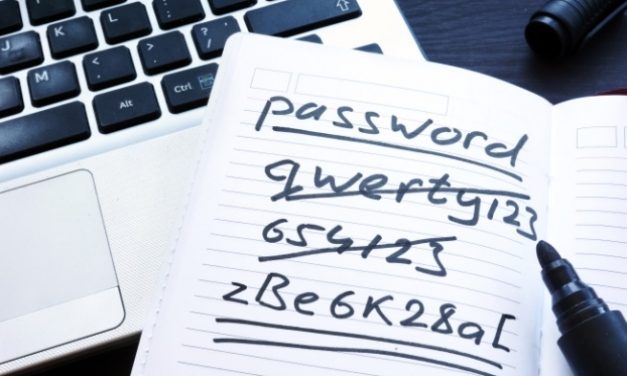 K
J
N
M
<
,
>
.
?
/
Alt
Ctrl
password
qwerty123
654123
zBe6K28a[